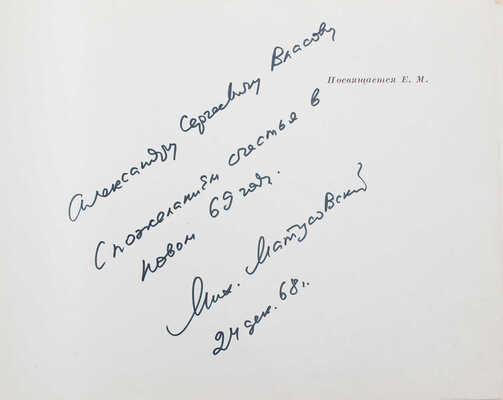 Посвящается Е. М.
Александру Сергеевичу Власову
С пожеланием счастья в
новом 69 году.
Мих. Матусовский
24 дек. 68 г.